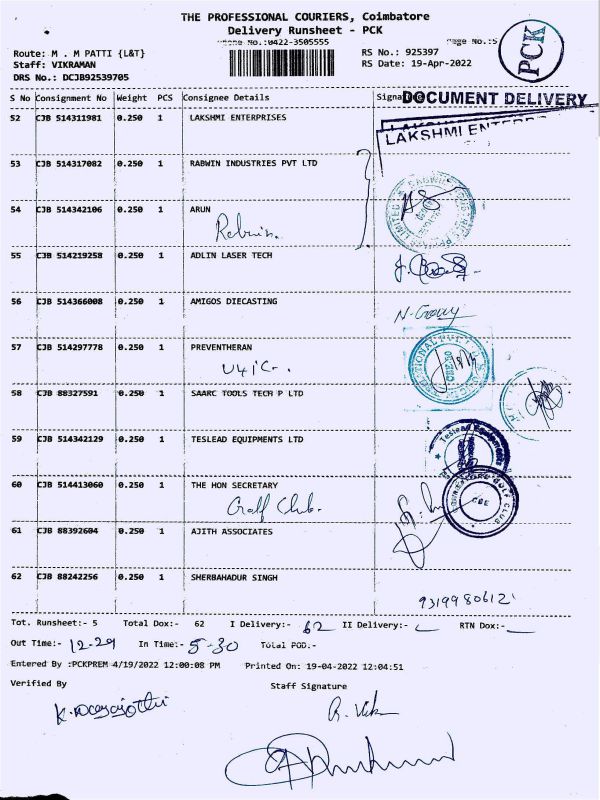 THE PROFESSIONAL COURIERS, Coimbatore
Delivery Runsheet - PCK
Phone No.:0422-3505555
Page No.:5
PCK
Route: M . M PATTI {L&T}
RS No.: 925397
Staff: VIKRAMAN
RS Date: 19-Apr-2022
DRS No.: DCJB92539705
S No Consignment No Weight PCS Consignee Details
DOCUMENT DELIVERY
52 CJB 514311981 0.250 1 LAKSHMI ENTERPRISES
LAKSHMI
53 CJB 514317082 0.250 1 RABWIN INDUSTRIES PVT LTD
54 CJB 514342106 0.250 1 ARUN
Rabwin.
55 CJB 514219258 0.250 1 ADLIN LASER TECH
56 CJB 514366008 0.250 1 AMIGOS DIECASTING
57 CJB 514297778 0.250 1 PREVENTHERAN
58 CJB 88327591 0.250 1 SAARC TOOLS TECH P LTD
59 CJB 514342129 0.250 1 TESLEAD EQUIPMENTS LTD
Teslead Equipments
60 CJB 514413060 0.250 1 THE HON SECRETARY
Golf Club.
GOLF CLUB
CBE
61 CJB 88392604 0.250 1 AJITH ASSOCIATES
62 CJB 88242256 0.250 1 SHERBAHADUR SINGH
9319980612
Tot. Runsheet:- 5 Total Dox:- 62 I Delivery:- 62 II Delivery:- RTN Dox:-
Out Time:- 12-29 In Time:- 5-30 Total POD:-
Entered By :PCKPREM 4/19/2022 12:00:08 PM Printed On: 19-04-2022 12:04:51
Verified By Staff Signature